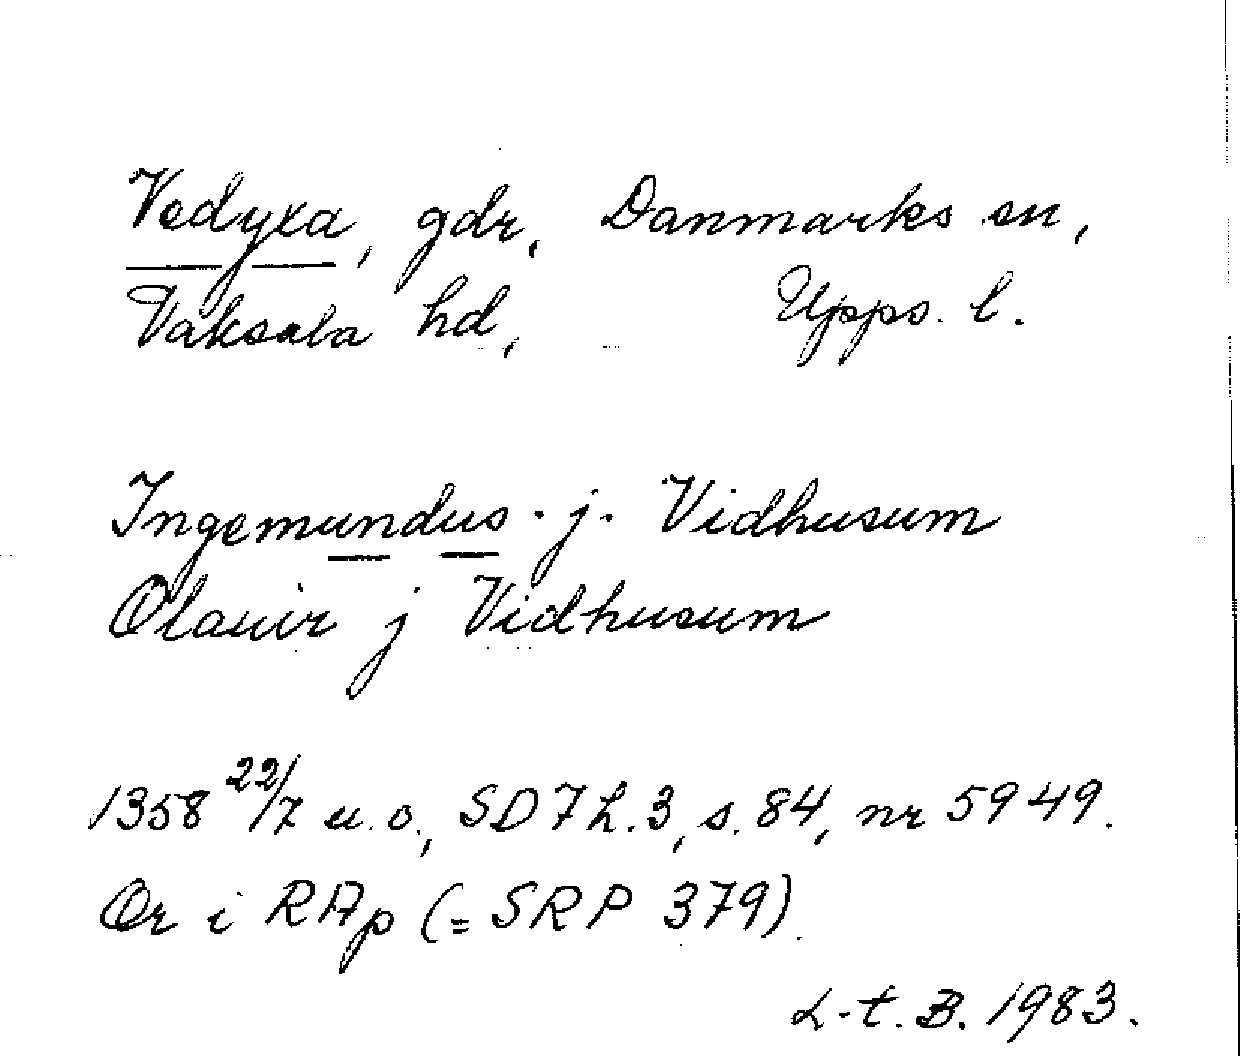 Vedyxa, gdr, Danmarks sn,
Vaksala hd, Upps. l.
Ingemundus . j. Vidhusum
Olauir j Vidhusum
1358 22/7 u.o., SD 7 h.3, s. 84, nr 5949.
Or i RAp (= SRP 379).
L-t. B. 1983.